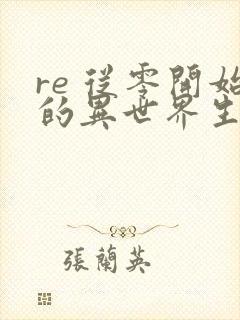 re 從零開始
的異世界生
張蘭英